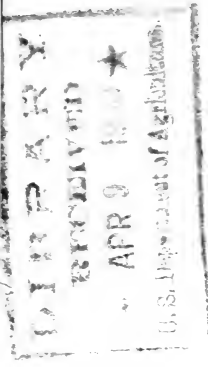 LIBRARY
RECEIVED
APR 9 ★
U.S. Department of Agriculture